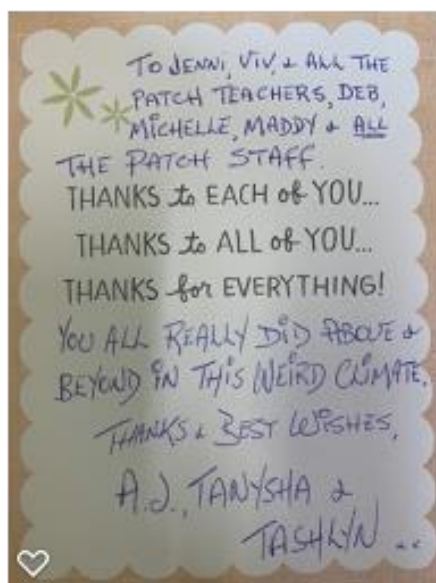 TO JENNI, VIV, & ALL THE
PATCH TEACHERS, DEB,
MICHELLE, MADDY & ALL
THE PATCH STAFF.
THANKS to EACH of YOU...
THANKS to ALL of YOU...
THANKS for EVERYTHING!
YOU ALL REALLY DID ABOVE &
BEYOND IN THIS WEIRD CLIMATE.
THANKS & BEST WISHES,
A.J., TANYSHA &
TASHLYN ..